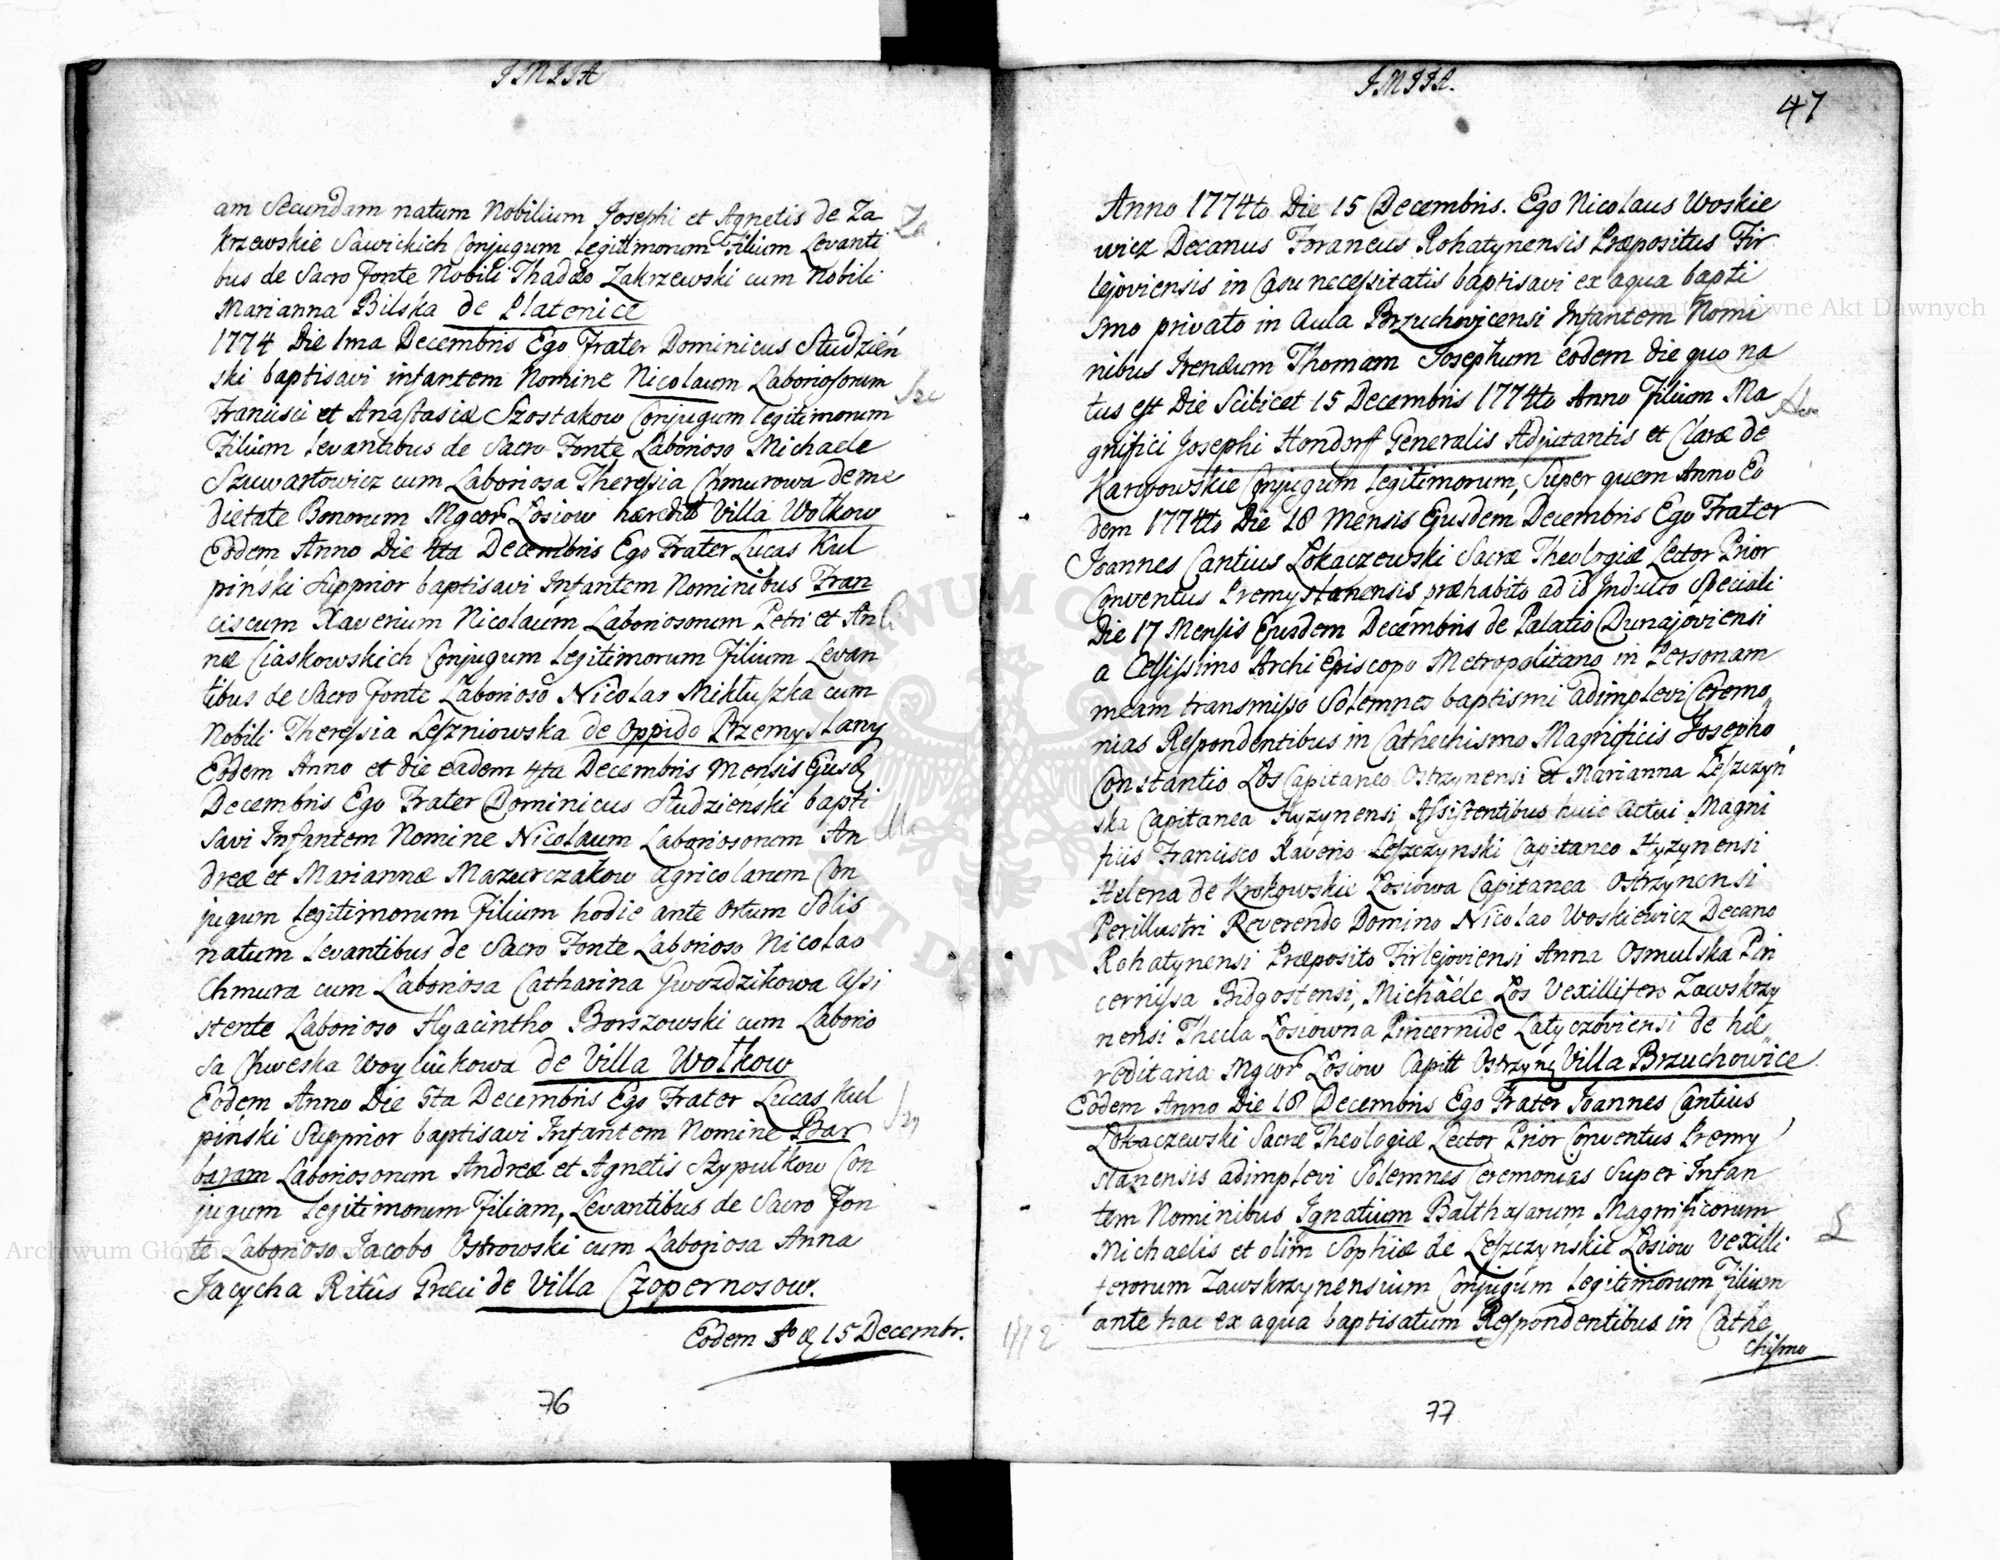 IMIIA
am Secundam natum Nobilium Josephi et Agnetis de Za
Za.
krzewskie Sawickich Conjugum Legittmorum Filium Levanti
bus de Sacro Fonte Nobili Thadæo Zakrzewski cum Nobili
Marianna Bilska de Platenice
1774 Die 1ma Decembris Ego Frater Dominicus Studzień
ski baptisavi infantem Nomine Nicolaum Laboriosorum
Francisci et Anastasiæ Szostakow Conjugum legitimorum
Filium levantibus de Sacro Fonte Laborioso Michaele
Szuwartowicz cum Laboriosa Theresia Chmurowa de me
dietate Bonorum Mgcor Łosiow hæredit Villa Wołkow
Eodem Anno Die 4ta Decembris Ego Frater Lucas Kul
piński Supprior baptisavi Infantem Nominibus Fran
ciscum Xaverium Nicolaum Laboriosorum Petri et An
næ Ciaskowskich Conjugum Legitimorum Filium Levan
tibus de Sacro Fonte Laborioso Nicolao Mikłuszka cum
Nobili Theresia Leszniowska de Oppido Przemyslany
Eodem Anno et die eadem 4ta Decembris Mensis Ejusd
Decembris Ego Frater Dominicus Studzieński bapti
savi Infantem Nomine Nicolaum Laboriosorum An
dreæ et Mariannæ Mazurczakow agricolarum Con
jugum Legitimorum Filium hodie ante Ortum Solis
natum Levantibus de Sacro Fonte Laborioso Nicolao
Chmura cum Laboriosa Catharina Gwozdzikowa Assi
stente Laborioso Hyacintho Borszowski cum Laborio
sa Chweska de Villa Wołkow
Eodem Anno Die 5ta Decembris Ego Frater Lucas Kul
piński Supprior baptisavi Infantem Nomine Bar
baram Laboriosorum Andreæ et Agnetis Szypułkow Con
jugum Legitimorum Filiam, Levantibus de Sacro Fon
te Laborioso Jacobo Ostrowski cum Laboriosa Anna
Jacycha Ritûs Græci de Villa Czopernosow.
Eodem Ao 15 Decembr.
76
IMIIA.
47
Anno 1774to Die 15 Decembris. Ego Nicolaus Woskie
wicz Decanus Foraneus Rohatynensis Præpositus Fir
lejoviensis in Casu necessitatis baptisavi ex aqua bapti
smo privato in Aula Brzuchovicensi Infantem Nomi
nibus Irenæum Thomam Josephum eodem die quo na
tus est Die Scilicet 15 Decembris 1774to Anno Filium Ma
gnifici Josephi Hondorff Generalis Adjutantis et Claræ de
Karwowskie Conjugum Legitimorum, Super quem Anno Eo
dem 1774to Die 18 Mensis Ejusdem Decembris Ego Frater
Joannes Cantius Łokaczewski Sacræ Theologiæ Lector Prior
Conventus Premyslanensis præhabito ad id Indulto Speciali
Die 17 Mensis Ejusdem Decembris de Palatio Dunajoviensi
a Celsissimo Archi Episcopo Metropolitano in Personam
meam transmisso Solemnes baptismi adimplevi Ceremo
nias Respondentibus in Cathechismo Magnificis Josepho
Constantio Łos Capitaneo Ostrzynensi et Marianna Leszczyń
ska Capitanea Hyzynensi Assistentibus huic Actui Magni
ficis Francisco Xaverio Leszczynski Capitaneo Hyzynensi
Helena de Krokowskie Łosiowa Capitanea Ostrzynensi
Perillustri Reverendo Domino Nicolao Woskiewicz Decano
Rohatynensi Præposito Firlejoviensi Anna Osmulska Pin
cernissa Bidgostensi, Michaele Łos Vexillifero Zawskrzy
nensi Thecla Łosiowna Pincernide Latyczoviensi de hæ
reditaria Mgcor Łosiow Capitt Ostrzyn Villa Brzuchowice
Eodem Anno Die 18 Decembris Ego Frater Joannes Cantius
Łokaczewski Sacræ Theologiæ Lector Prior Conventus Premy
slanensis adimplevi Solemnes Ceremonias Super Infan
tem Nominibus Ignatium Balthasarum Magnificorum
Michaelis et olim Sophiæ de Leszczyńskie Łosiow Vexilli
ferorum Zawskrzynensium Conjugum Legitimorum Filium
ante hac ex aqua baptisatum Respondentibus in Cathe
chismo
77
Archiwum Główne Akt Dawnych